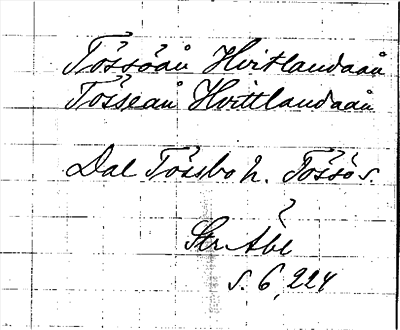 Tössöån Hvitlandaån
Tösseån Hvittlandaån
Dal Tössbo h. Tössö s.
?
Str Åbl
s. 6, 224